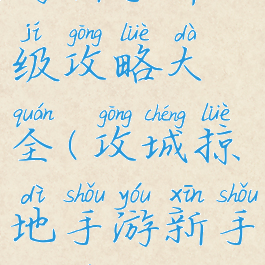 jí gōng lüè dà
级攻略大
quán gōng chéng lüè
全(攻城掠
dì shǒu yóu xīn shǒu
地手游新手